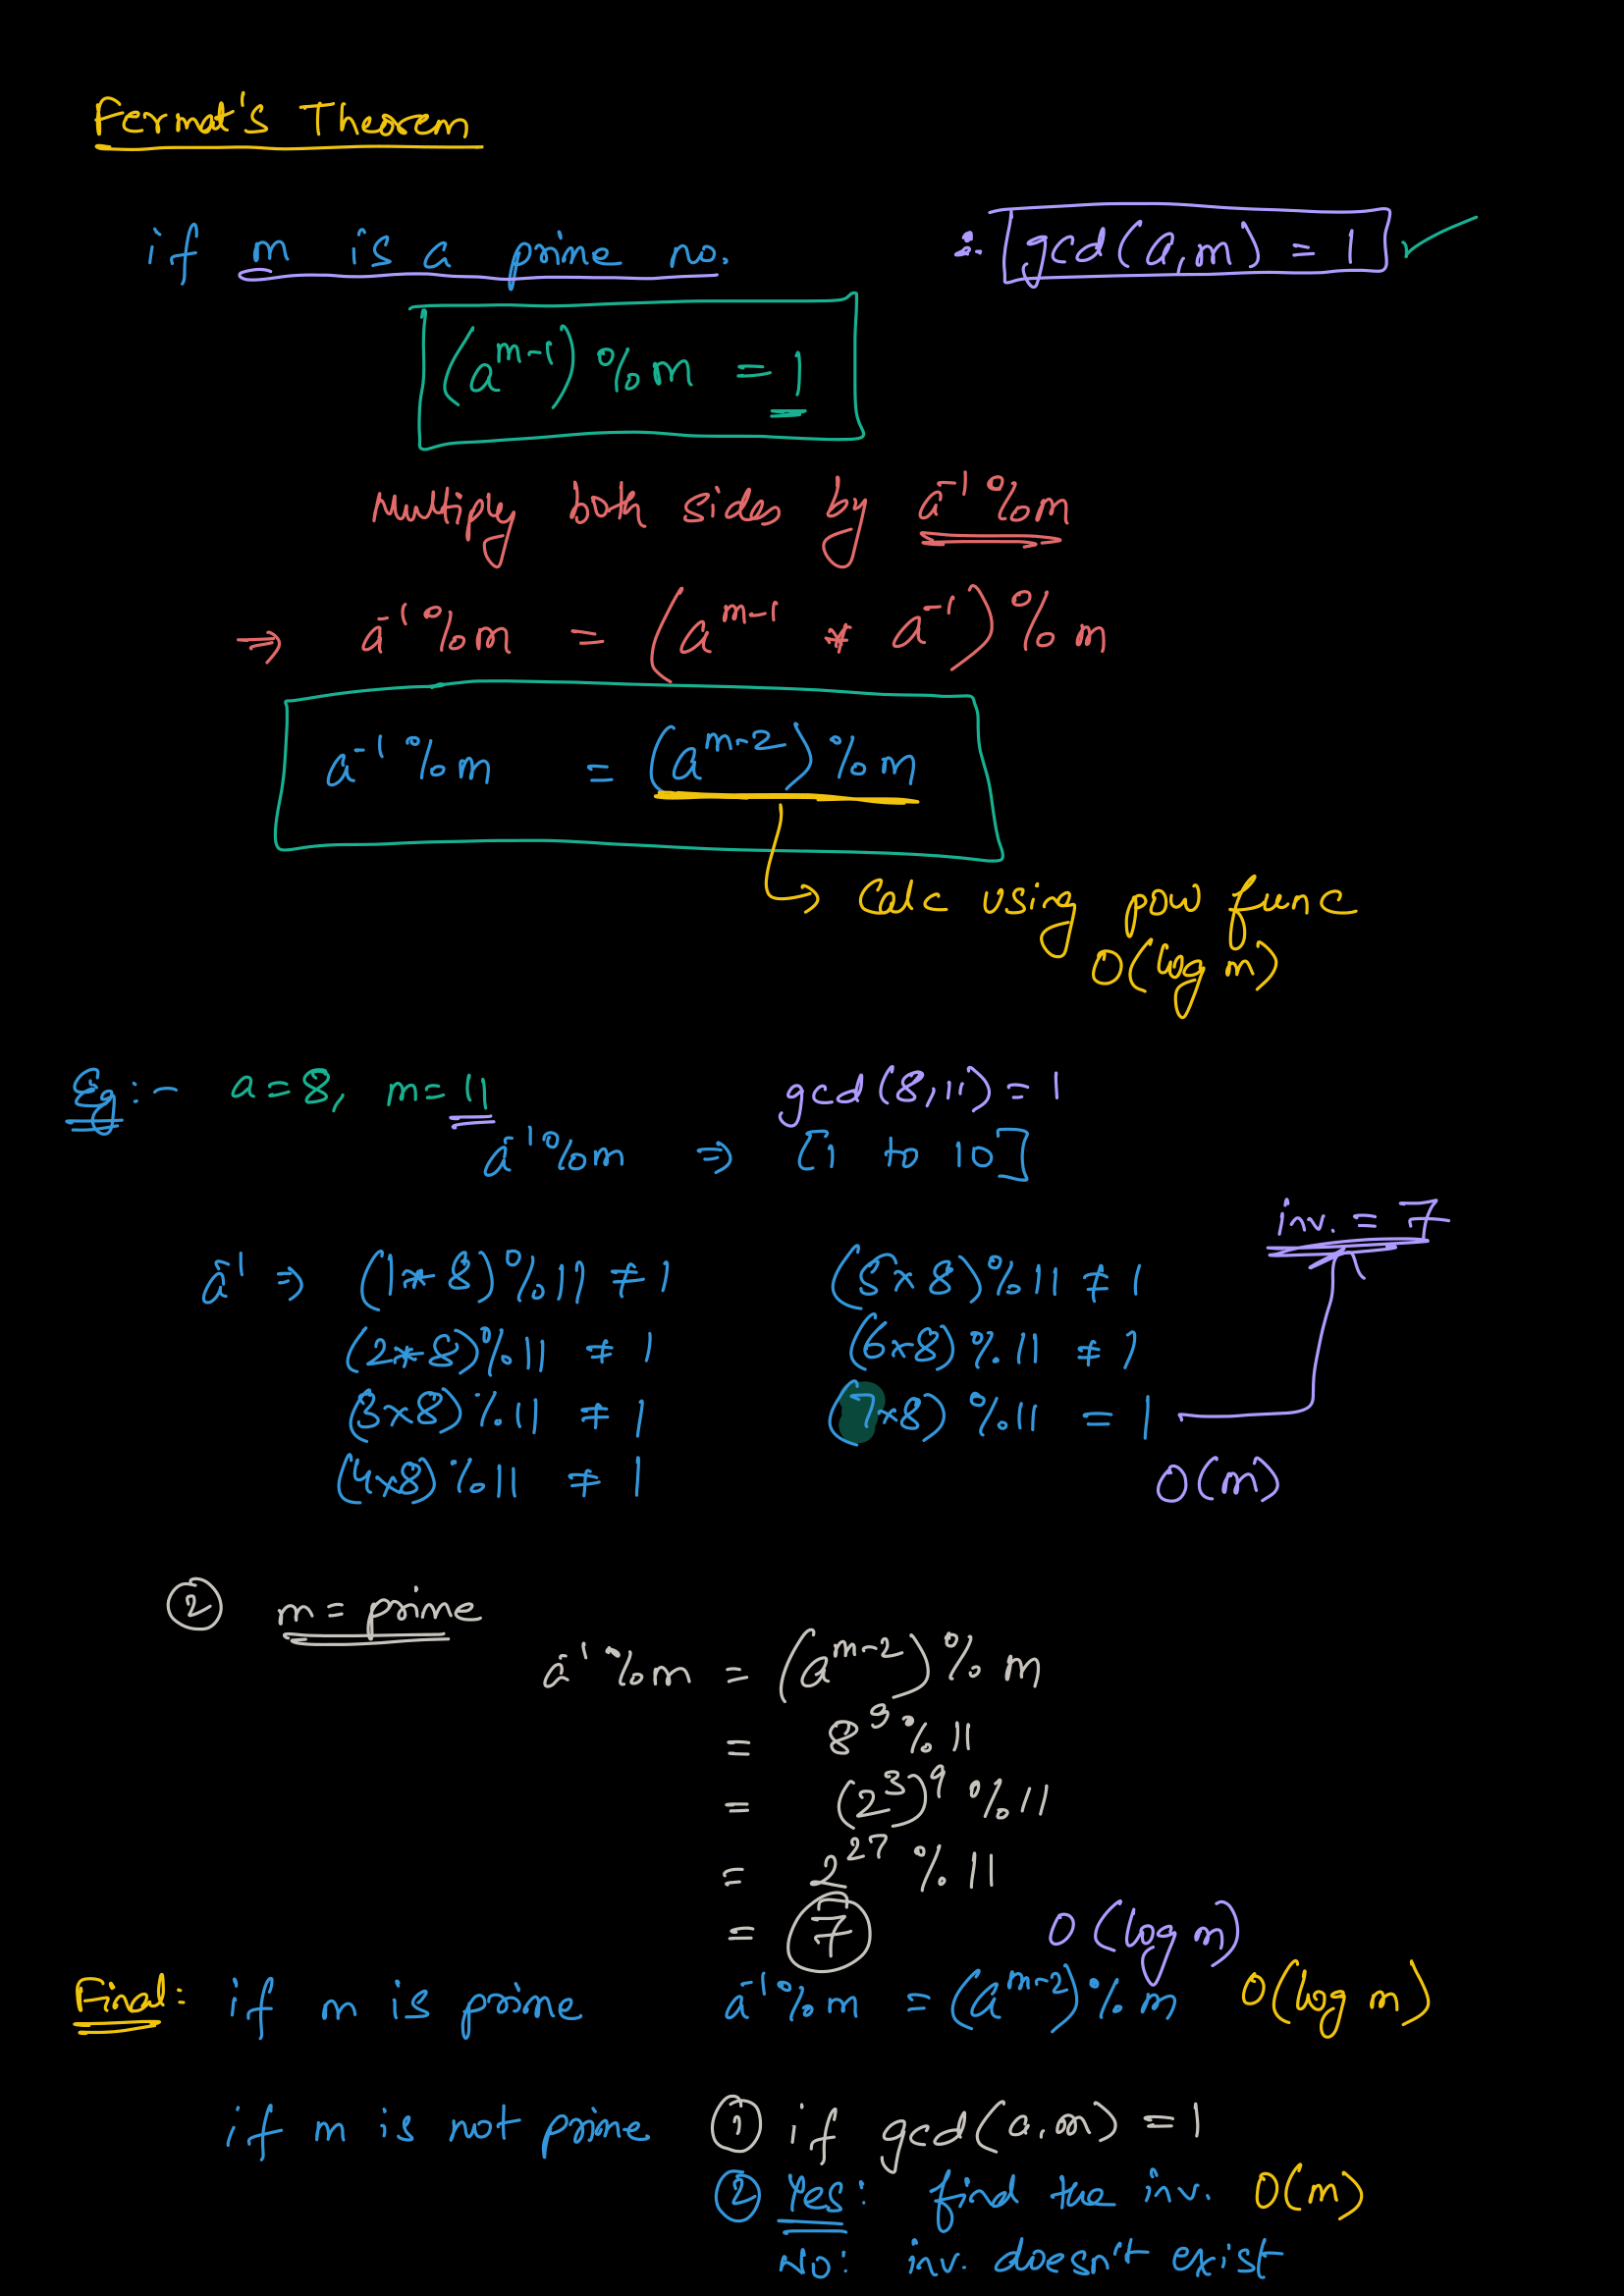 Fermat's Theorem
if m is a prime no. ∴ gcd(a,m) = 1 ✓
(a^(m-1)) % m = 1
Multiply both sides by a^-1 % m
⇒ a^-1 % m = (a^(m-1) * a^-1) % m
a^-1 % m = (a^(m-2)) % m
↳ Calc using pow func
O(log m)
Eg :- a=8, m=11 gcd(8,11) = 1
a^-1 % m ⇒ [1 to 10]
inv. = 7
a^-1 ⇒ (1*8)%11 ≠ 1 (5x8)%11 ≠ 1
(2*8)%11 ≠ 1 (6x8)%11 ≠ 1
(3x8)%11 ≠ 1 (7x8)%11 = 1
(4x8)%11 ≠ 1 O(m)
② m = prime
a^-1 % m = (a^(m-2)) % m
= 8^9 % 11
= (2^3)^9 % 11
= 2^27 % 11
= 7 O(log m)
Final: if m is prime a^-1 % m = (a^(m-2)) % m O(log m)
if m is not prime ① if gcd(a,m) = 1
② Yes: find the inv. O(m)
No: inv. doesn't exist